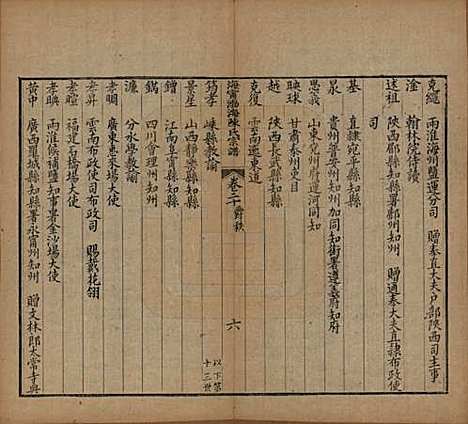 克繩　兩淮海州鹽運分司　贈奉直大夫戶部陝西司主事
淦　翰林院侍讀
述祖　陝西郿縣知縣署鄜州知州　贈通奉大夫直隸布政使
司
基　直隸宛平縣知縣
泉　貴州普安州知州署遵義府知府
思義　山東兗州府運河同知
映球　甘肅秦州吏目
越　陝西長武縣知縣
克復　雲南迤東道
海寧渤海陳氏宗譜　卷二十　爵秩　六
筠孝　嵊縣教諭
景星　山西靜樂縣知縣
鐕　江南阜寧縣知縣
鎬　四川會理州知州
濂　分水學教諭
老矙　廣東惠來場大使
老昇　雲南布政使司布政司　賜戴花翎
老暄　福建石碼場大使
老映　兩淮候補鹽知事署金沙場大使
黄中　廣西羅城縣知縣署永甯州知州　贈文林郎太常寺典
以下第
十三世